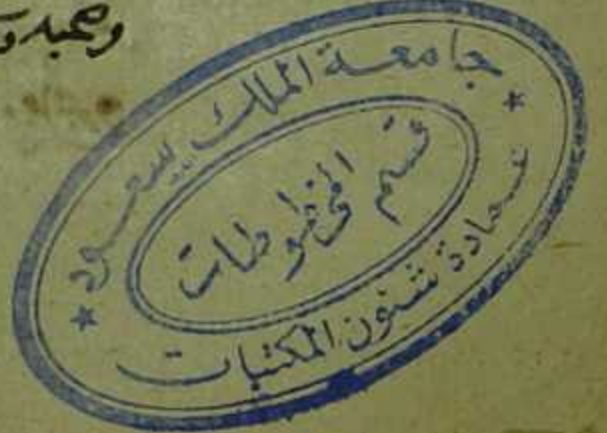 وصحبه و
جامعة الملك سعود
قسم المخطوطات
عمادة شئون المكتبات